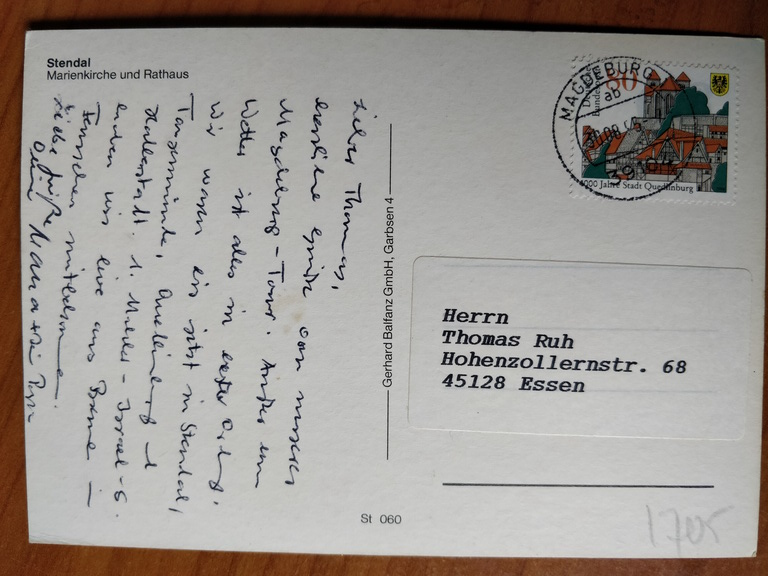 Stendal
Marienkirche und Rathaus
Lieber Thomas,
herzliche Grüße von unserer
Magdeburg - Tour. Außer dem
Wetter ist alles in bester Ordnung.
Wir waren bis jetzt in Stendal,
Tangermünde, Quedlinburg u
Halberstadt. 1. Maccabi - Israel - G.
haben wir live aus Bonn
Fernsehen mitbekommen.
Liebe Grüße
Deine Mama + Papa
Gerhard Balfanz GmbH, Garbsen 4
St 060
MAGDEBURG
ab
39
80
1000 Jahre Stadt Quedlinburg
Herrn
Thomas Ruh
Hohenzollernstr. 68
45128 Essen
1705